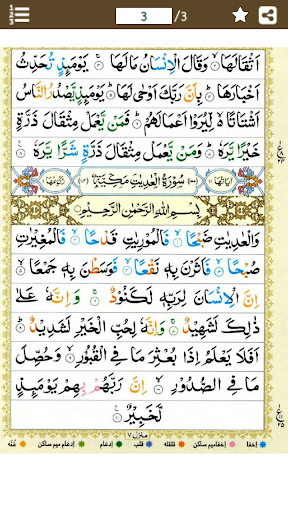 3 /3
اَثْقَالَهَا ۙ وَقَالَ الْاِنْسَانُ مَا لَهَا ۚ يَوْمَئِذٍ تُحَدِّثُ
اَخْبَارَهَا ۙ بِاَنَّ رَبَّكَ اَوْحٰى لَهَا ؕ يَوْمَئِذٍ يَّصْدُرُ النَّاسُ
اَشْتَاتًا ۙ لِّيُرَوْا اَعْمَالَهُمْ ؕ فَمَنْ يَّعْمَلْ مِثْقَالَ ذَرَّةٍ
خَيْرًا يَّرَهٗ ؕ وَمَنْ يَّعْمَلْ مِثْقَالَ ذَرَّةٍ شَرًّا يَّرَهٗ
سُوْرَةُ الْعٰدِيٰتِ مَكِّيَّةٌ
بِسْمِ اللهِ الرَّحْمٰنِ الرَّحِيْمِ
وَالْعٰدِيٰتِ ضَبْحًا ۙ فَالْمُوْرِيٰتِ قَدْحًا ۙ فَالْمُغِيْرٰتِ
صُبْحًا ۙ فَاَثَرْنَ بِهٖ نَقْعًا ۙ فَوَسَطْنَ بِهٖ جَمْعًا ۙ
اِنَّ الْاِنْسَانَ لِرَبِّهٖ لَكَنُوْدٌ ۚ وَاِنَّهٗ عَلٰى
ذٰلِكَ لَشَهِيْدٌ ۚ وَاِنَّهٗ لِحُبِّ الْخَيْرِ لَشَدِيْدٌ ؕ
اَفَلَا يَعْلَمُ اِذَا بُعْثِرَ مَا فِي الْقُبُوْرِ ۙ وَحُصِّلَ
مَا فِي الصُّدُوْرِ ۙ اِنَّ رَبَّهُمْ بِهِمْ يَوْمَئِذٍ
لَّخَبِيْرٌ
منزل ٧
اخفا اخفامیم ساکن قلقله قلب ادغام ادغام میم ساکن غنّه